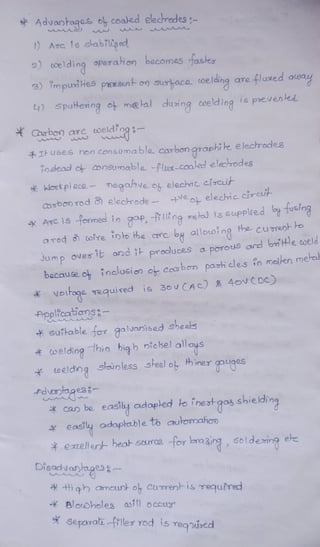 * Advantages of coated electrodes :-
1) Arc is stabilized
2) welding operation becomes faster
3) impurities present on surface welding are fluxed away
4) sputtering of metal during welding is prevented
* Carbon arc welding :-
* It uses non consumable carbon graphite electrodes
instead of consumable flux-coated electrodes
* Workpiece - negative of electric circuit
carbon rod or electrode - +ve of electric circuit
* Arc is formed in gap, filling metal is supplied by fusing
a rod or wire into the arc by allowing the current to
Jump over it and it produces a porous and brittle weld
because of inclusion of carbon particles in molten metal
* Voltage required is 30V (AC) & 40V (DC)
Applications :-
* suitable for galvanised sheets
* welding thin high nickel alloys
* welding stainless steel of thiner gauges
Advantages :-
* can be easily adapted to inert gas shielding
* easily adaptable to automation
* excellent heat source for brazing, soldering etc
Disadvantages :-
* High amount of current is required
* Blowholes will occur
* separate filler rod is required